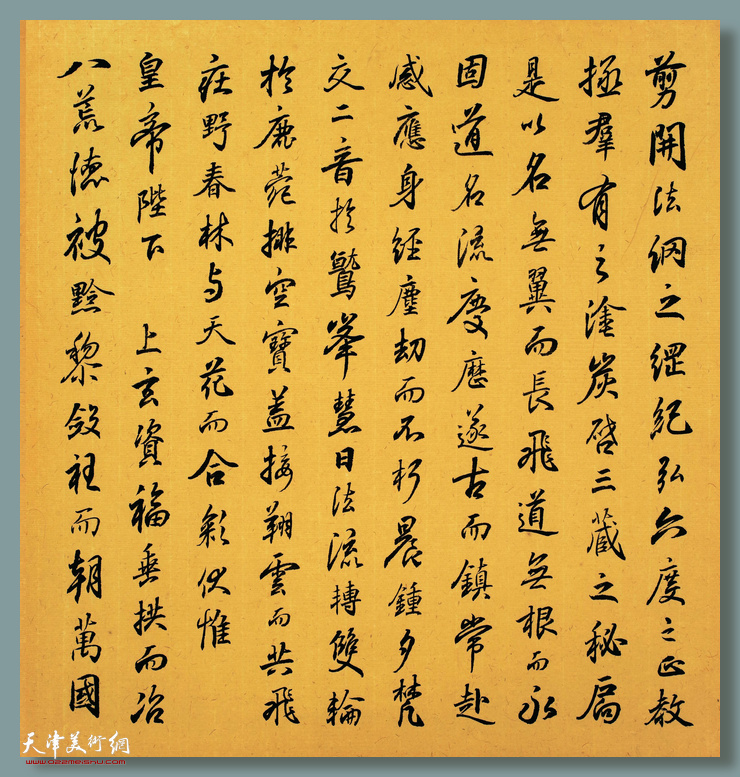 剪開法網之綱紀弘六度之正教
拯羣有之塗炭啓三藏之秘扃
是以名無翼而長飛道無根而永
固道名流慶歷遂古而鎮常赴
感應身經塵劫而不朽晨鍾夕梵
交二音於鷲峯慧日法流轉雙輪
於鹿菀排空寶蓋接翔雲而共飛
莊野春林与天花而合彩伏惟
皇帝陛下 上玄資福垂拱而治
八荒德被黔黎斂衽而朝萬國
天津美術網
www.022meishu.com